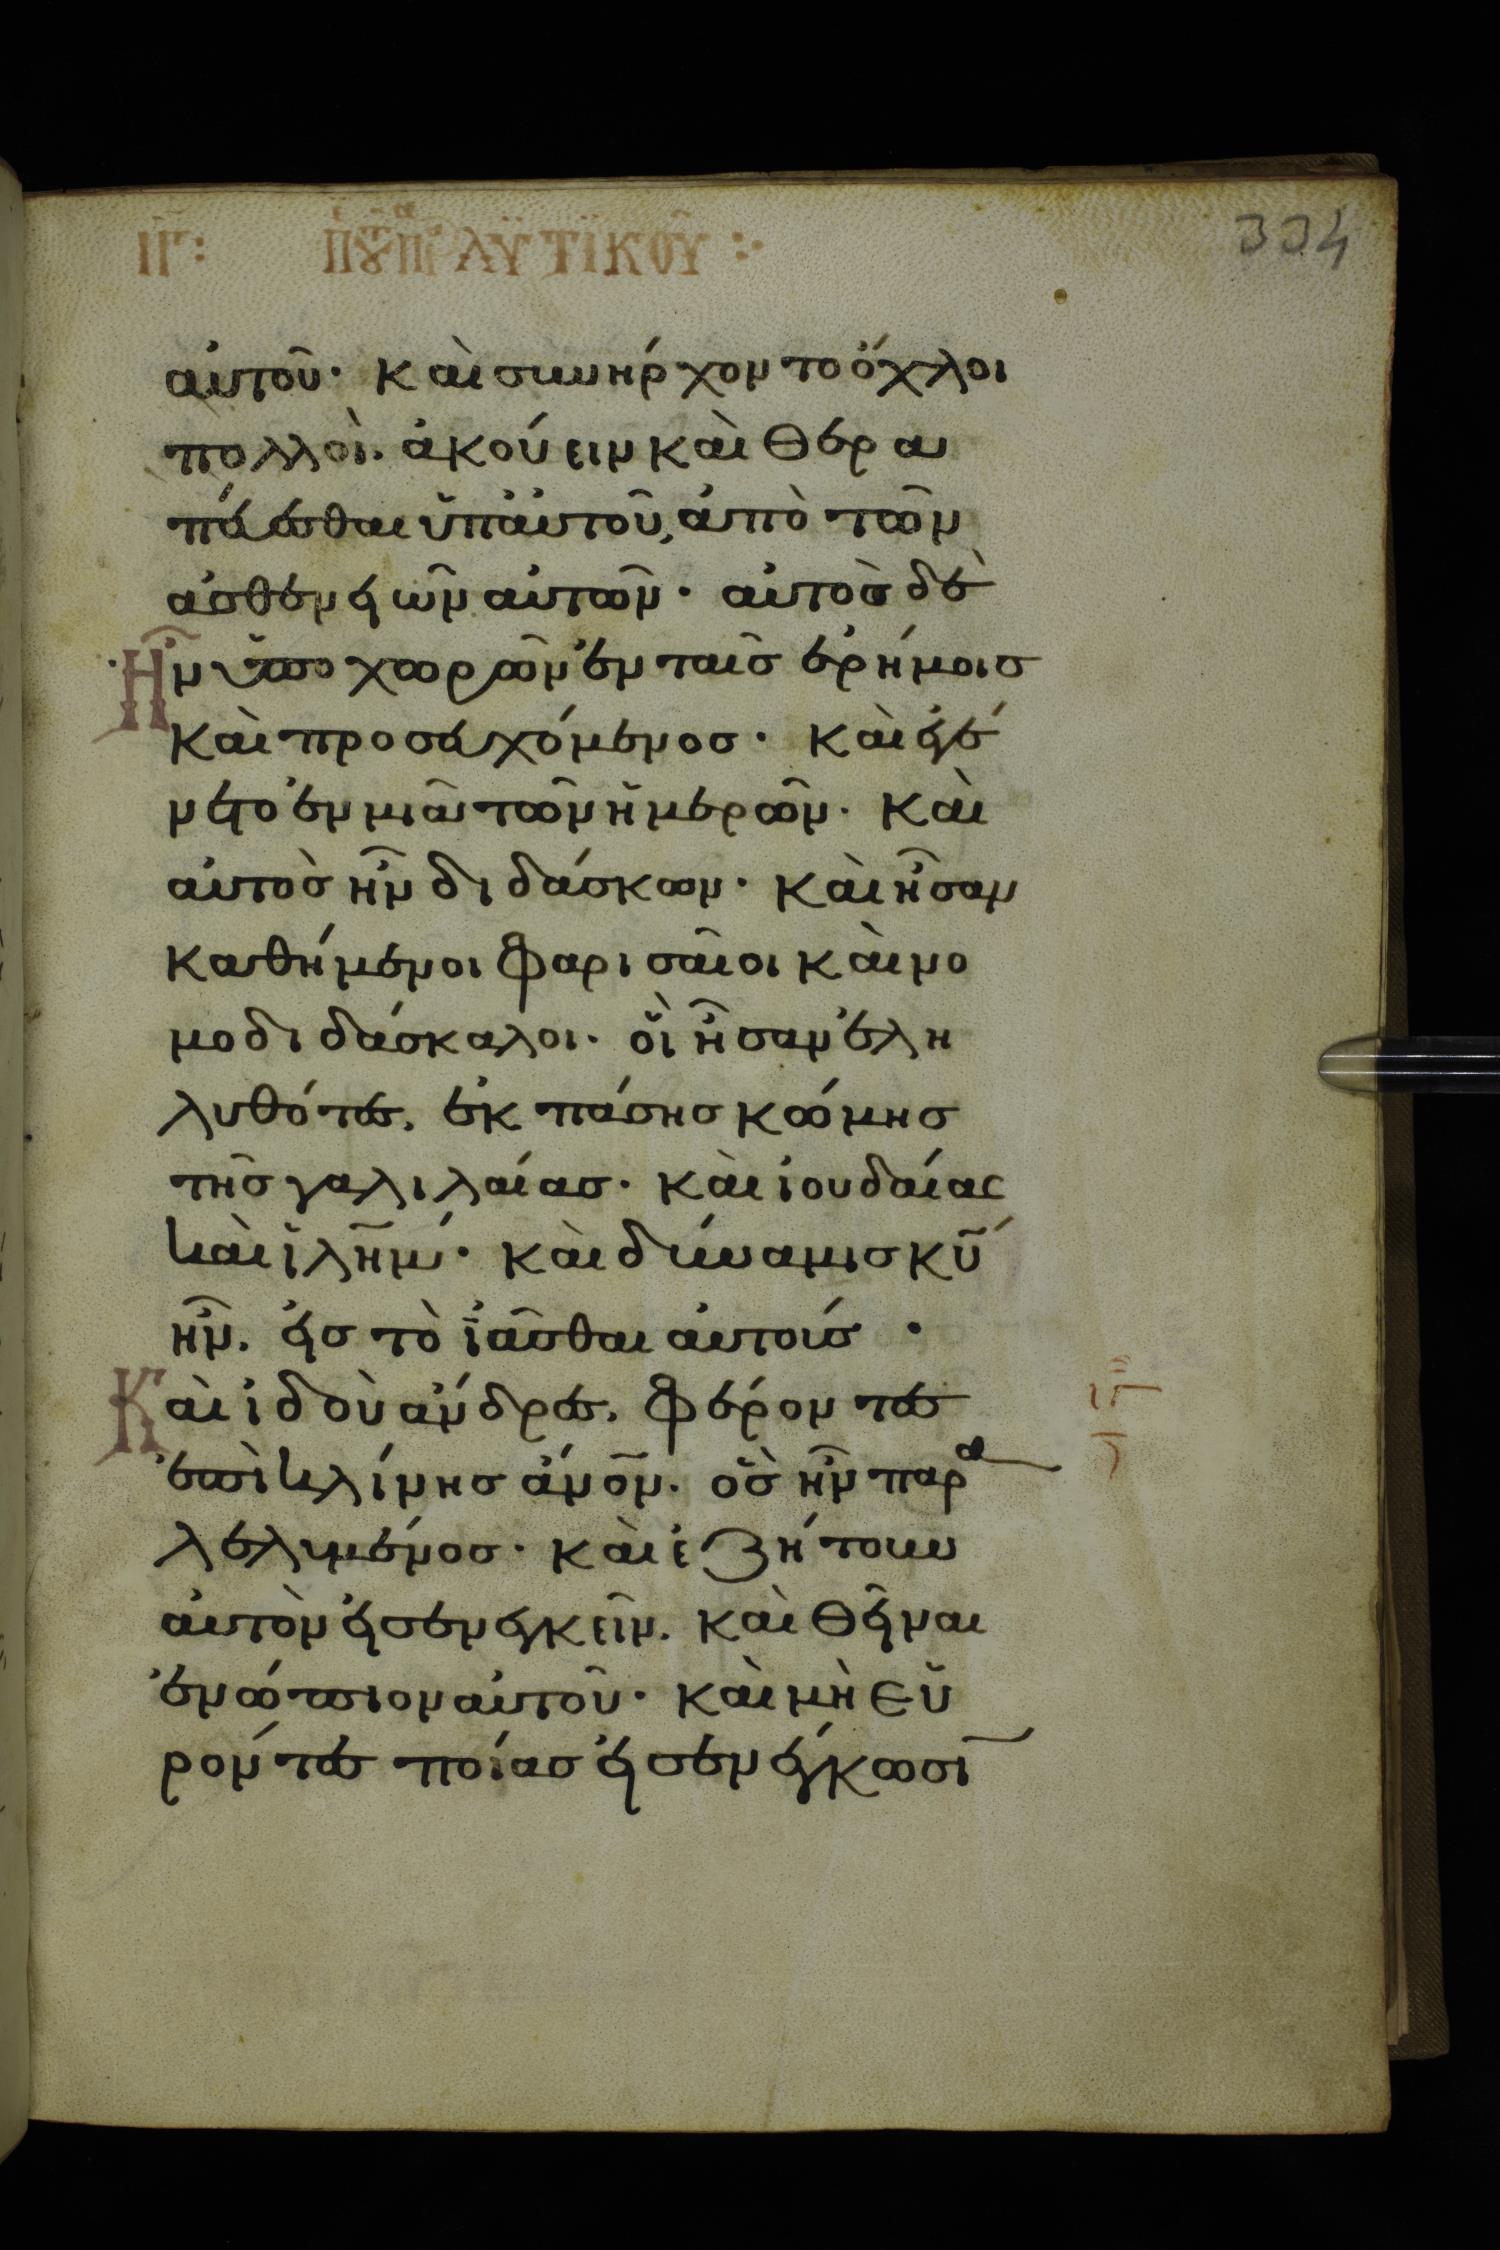 ΙΓ: ΠΑΡΑΛΥΤΙΚΟΥ
334
αὐτοῦ· καὶ συνήρχοντο ὄχλοι
πολλοὶ. ἀκούειν καὶ θερα
πεύεσθαι ὑπ' αὐτοῦ, ἀπὸ τῶν
ἀσθενειῶν αὐτῶν· αὐτὸς δὲ
ἦν ὑποχωρῶν ἐν ταῖς ἐρήμοις
καὶ προσευχόμενος· καὶ ἐγέ
νετο ἐν μιᾶ τῶν ἡμερῶν· καὶ
αὐτὸς ἦν διδάσκων· καὶ ἦσαν
καθήμενοι φαρισαῖοι καὶ νο
μοδιδάσκαλοι· οἳ ἦσαν ἐλη
λυθότες. ἐκ πάσης κώμης
τῆς γαλιλαίας· καὶ ἰουδαίας
καὶ ἰλῆμ· καὶ δύναμις κῡ
ἦν. εἰς τὸ ἰᾶσθαι αὐτούς ·
Καὶ ἰδοὺ ἄνδρες. φέροντες
ἐπὶ κλίνης ἄνον. ὃς ἦν παρα
λελυμένος· καὶ ἐζήτουν
αὐτὸν εἰσενεγκεῖν. καὶ θεῖναι
ἐνώπιον αὐτοῦ· καὶ μὴ εὑ
ρόντες ποίας εἰσενέγκωσῑ